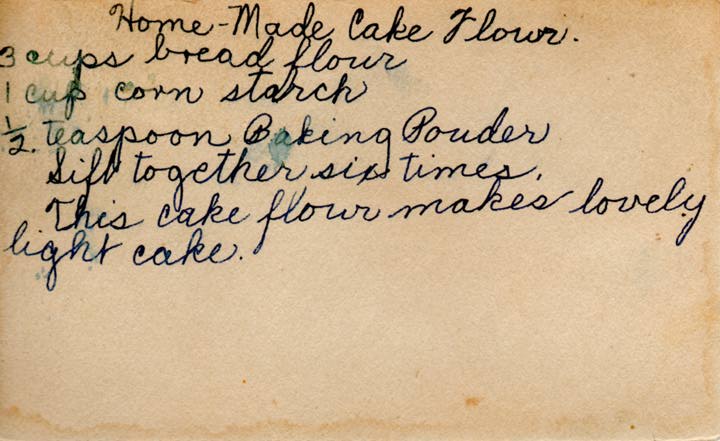 Home-Made Cake Flour.
3 cups bread flour
1 cup corn starch
1/2. teaspoon Baking Pouder
Sift together six times.
This cake flour makes lovely
light cake.